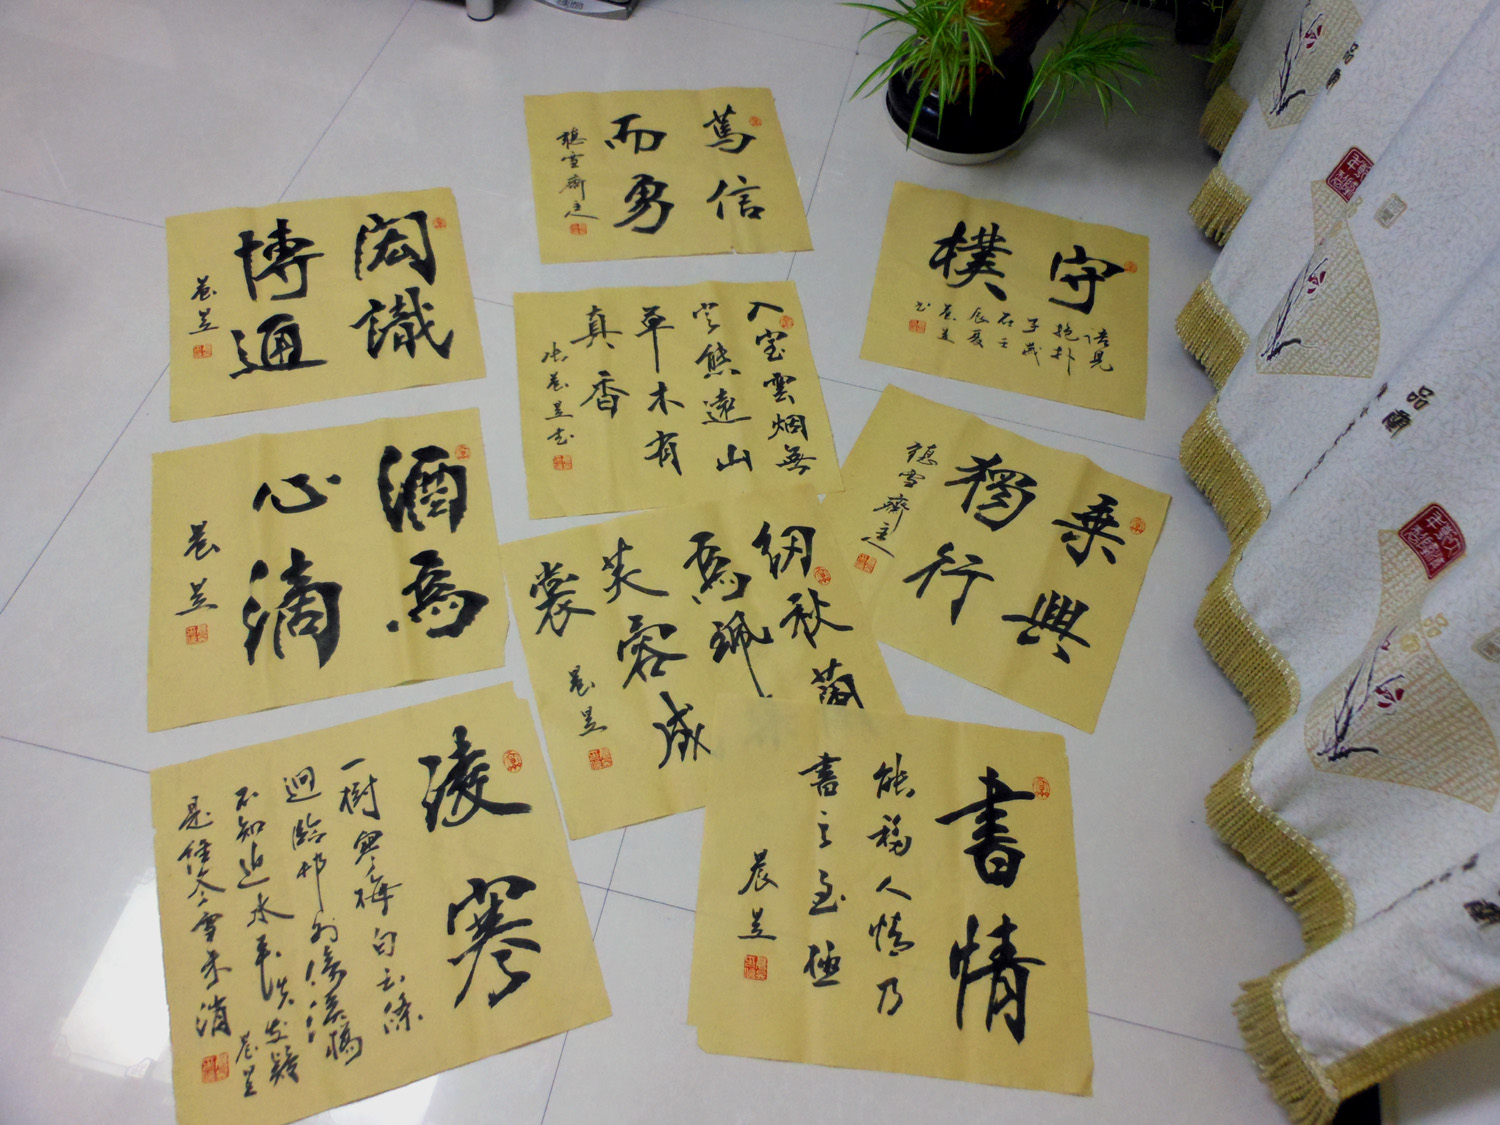 篤信
而勇
聽雪齋主
閎識
博通
晨昱
守樸
語見
抱朴
子歲
在壬
辰夏
晨昱
书
入室雲烟無
定態遠山
草木有
真香
張晨昱書
酒為
心滴
晨昱
乘興
獨行
聽雪齋主
紉秋蘭
為珮
芙蓉成
裳
晨昱
凌寒
一樹寒梅白玉條
迥臨村外傍溪橋
不知近水花先發疑
是經冬雪未消
晨昱
書情
能移人情乃
書之至極
晨昱